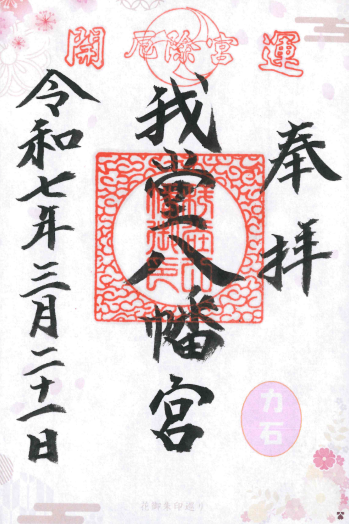 開運
厄除宮
奉拝
我堂八幡宮
令和七年三月二十一日
力石
花御朱印巡り